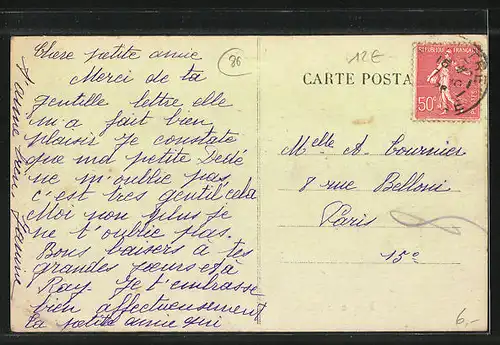 Chere petite amie
Merci de ta
gentille lettre elle
m'a fait bien
plaisir Je constate
que ma petite Dédé
ne m'oublie pas
c'est tres gentil cela
Moi non plus je
ne t'oublie pas.
Bons baisers à tes
grandes soeurs et à
Ray. Je t'embrasse
bien affectueusement
ta petite amie qui
t'aime bien
86
12E
CARTE POSTA
REPUBLIQUE FRANÇAISE
50c
Melle A Tournier
8 rue Belloni
Paris
15e
6,-